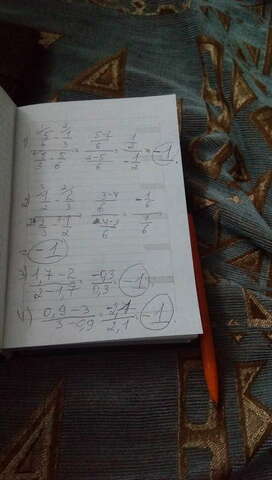 1) 5/6 - 1/3 / 1/3 - 5/6 = 5-2/6 / 2-5/6 = 1/2 / -1/2 = -1
2) 1/2 - 2/3 / 2/3 - 1/2 = 3-4/6 / 4-3/6 = -1/6 / 1/6
= -1
3) 1,7-2 / 2-1,7 = -0,3 / 0,3 = -1
4) 0,9-3 / 3-0,9 = -2,1 / 2,1 = -1